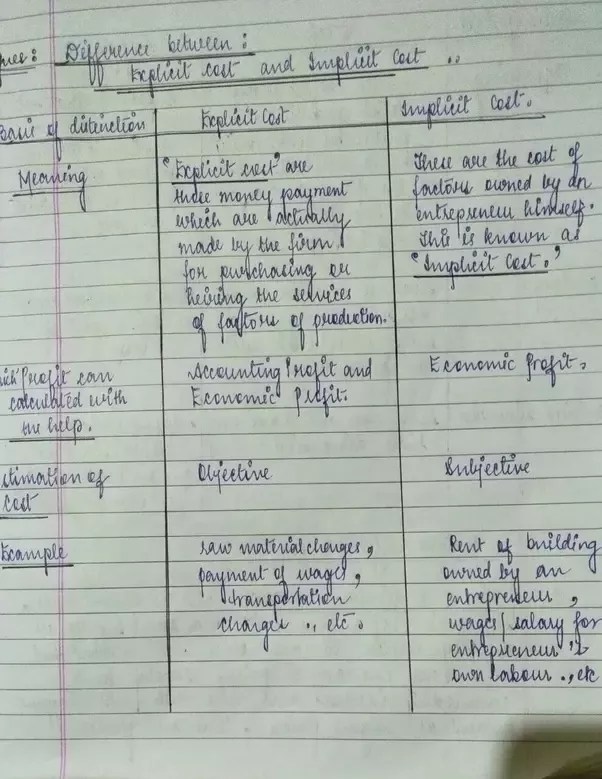 Ques: Difference between :
Explicit cost and Implicit Cost ..
Basis of distinction Explicit Cost Implicit Cost.
Meaning
"Explicit cost" are
those money payment
which are actually
made by the firm
for purchasing or
heiring the services
of factors of production.
These are the cost of
factors owned by an
entrepreneur himself.
This is known as
"Implicit Cost."
Profit can
calculated with
the help.
Accounting Profit and
Economic Profit.
Economic Profit.
stimation of
Cost
Objective
Subjective
Example
raw material charges,
payment of wages,
transportation
charges ., etc.
Rent of building
owned by an
entrepreneur,
wages/salary for
entrepreneur's
own labour ., etc